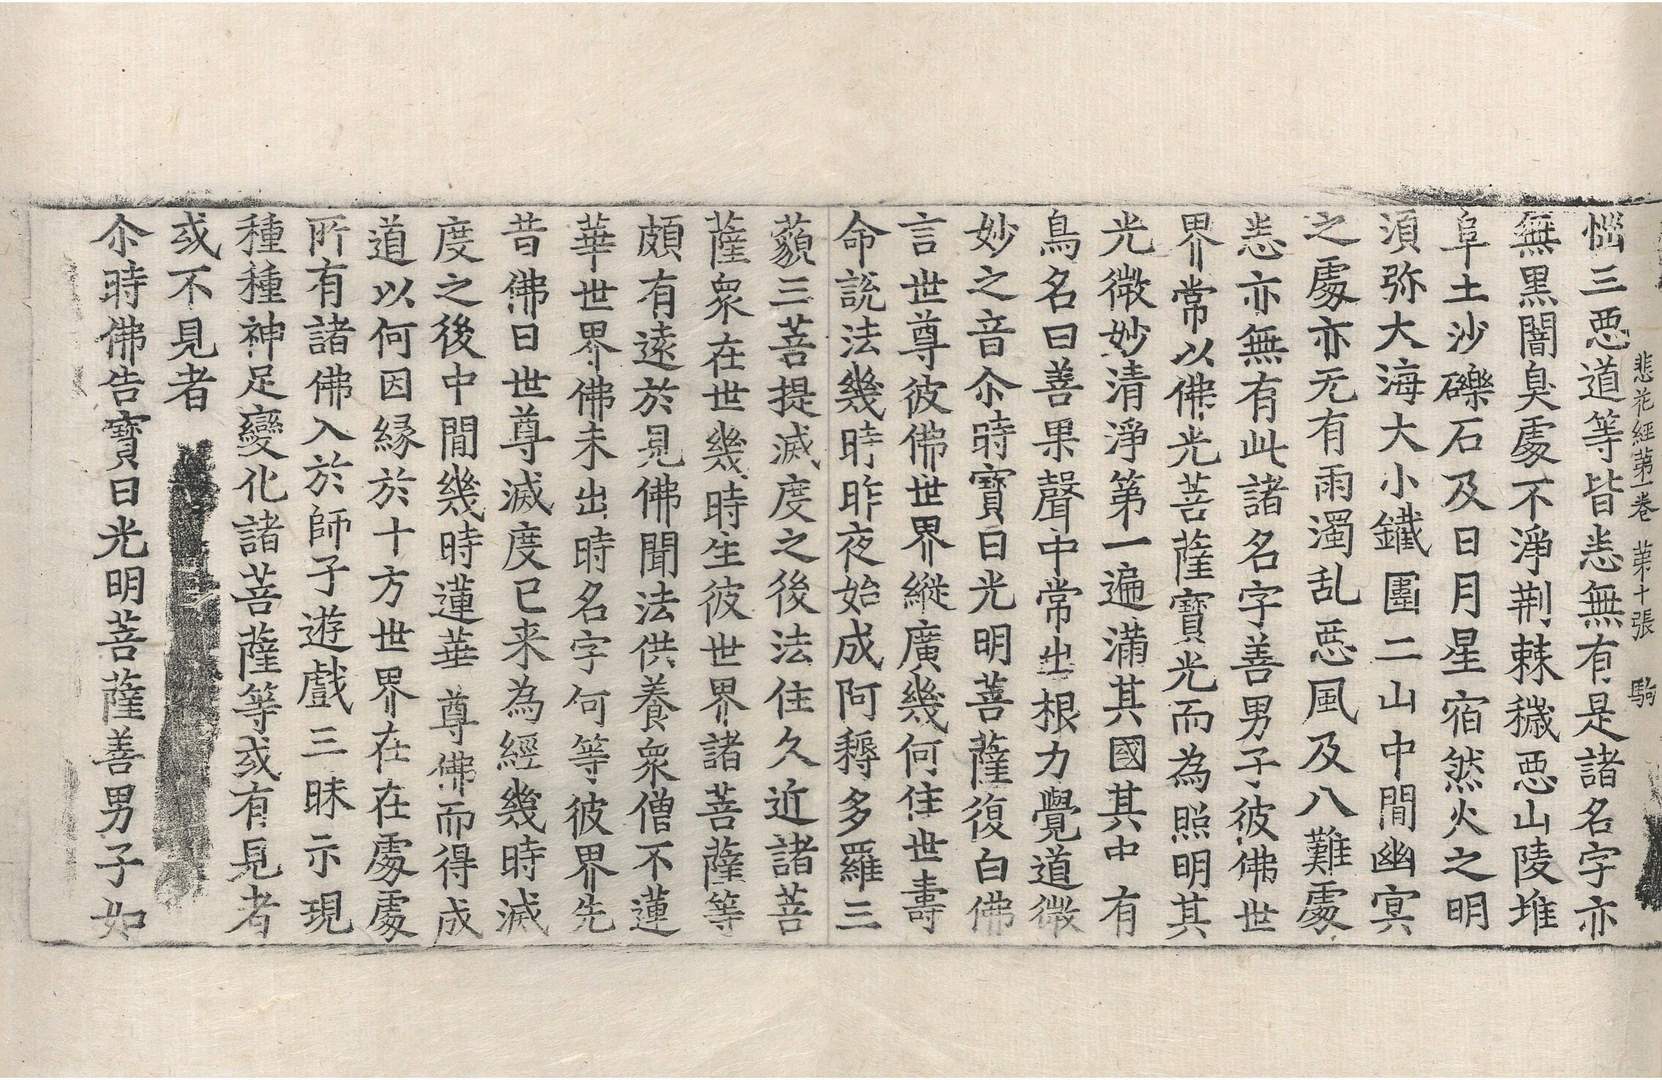 悲花經第一卷　第十張　駒
惱三惡道等皆悉無有是諸名字亦
無黑闇臭處不淨荆棘穢惡山陵堆
阜土沙礫石及日月星宿然火之明
湏弥大海大小鐵圍二山中間幽冥
之處亦无有雨濁乱惡風及八難處
悉亦無有此諸名字善男子彼佛世
界常以佛光菩薩寶光而為照明其
光微妙清淨第一遍滿其國其中有
鳥名曰善果聲中常出根力覺道微
妙之音尒時寶日光明菩薩復白佛
言世尊彼佛世界縱廣幾何住世壽
命說法幾時昨夜始成阿耨多羅三
藐三菩提滅度之後法住久近諸菩
薩眾在世幾時生彼世界諸菩薩等
頗有遠於見佛聞法供養眾僧不蓮
華世界佛未出時名字何等彼界先
昔佛日世尊滅度已来為經幾時滅
度之後中間幾時蓮華尊佛而得成
道以何因緣於十方世界在在處處
所有諸佛入於師子遊戲三昧示現
種種神足變化諸菩薩等或有見者
或不見者
尒時佛告寶日光明菩薩善男子如